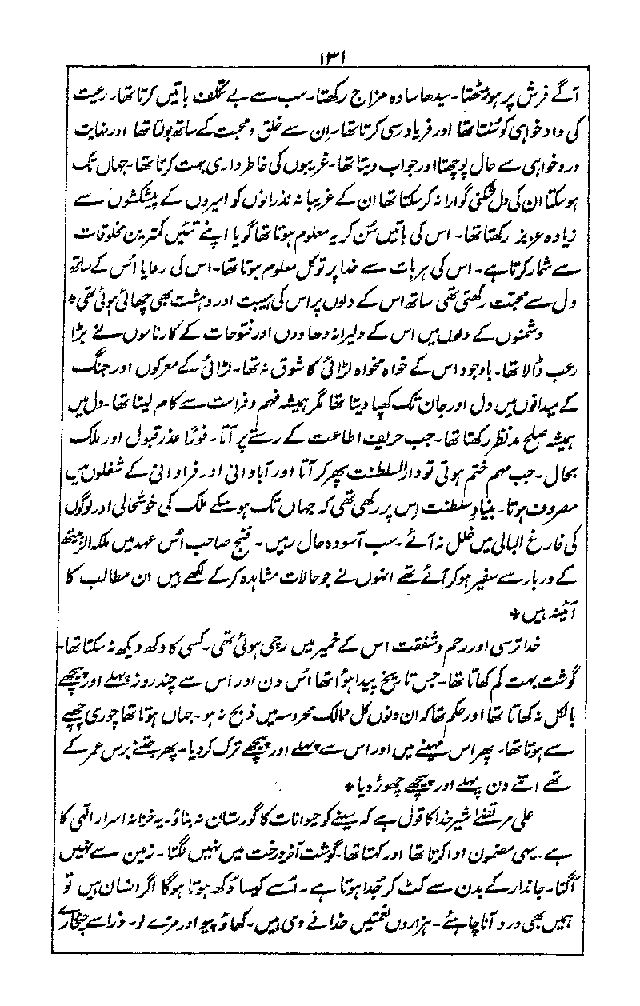 ۱۳۱
آگے فرش پر ہو بیٹھتا۔ سیدھا سادہ مزاج رکھتا۔ سب سے بے تکلف باتیں کرتا تھا۔ رعیت
کی داد خواہی کو سُنتا تھا اور فریاد رسی کرتا تھا۔ اِن سے خلق و محبت کے ساتھ بولتا تھا اور نہایت
درد خواہی سے حال پوچھتا اور جواب دیتا تھا۔ غریبوں کی خاطر داری بہت کرتا تھا۔ جہاں تک
ہو سکتا ان کی دل شکنی گوارا نہ کر سکتا تھا ان کے غریبانہ نذرانوں کو امیروں کے پیشکشوں سے
زیادہ عزیز رکھتا تھا۔ اس کی باتیں سُن کر یہ معلوم ہوتا تھا گویا اپنے تئیں کمترین مخلوقات
سے شمار کرتا ہے۔ اس کی ہر بات سے خدا پر توکل معلوم ہوتا تھا۔ اس کی رعایا اُس کے ساتھ
دل سے محبت رکھتی تھی ساتھ اس کے دلوں پر اس کی ہیبت اور دہشت بھی چھائی ہوئی تھی *
دشمنوں کے دلوں میں اس کے دلیرانہ دھاووں اور فتوحات کے کارناموں نے بڑا
رعب ڈالا تھا۔ باوجود اس کے خواہ مخواہ لڑائی کا شوق نہ تھا۔ لڑائی کے معرکوں اور جنگ
کے میدانوں میں دل اور جان تک کھپا دیتا تھا مگر ہمیشہ فہم و فراست سے کام لیتا تھا۔ دل میں
ہمیشہ صلح مدِنظر رکھتا تھا۔ جب حریف اطاعت کے رستے پر آتا۔ فوراً عذر قبول اور ملک
بحال۔ جب مہم ختم ہوتی تو دارالسلطنت پھر کر آتا اور آبادانی اور فراوانی کے شغلوں میں
مصروف ہوتا۔ بنیادِ سلطنت اِس پر رکھی تھی کہ جہاں تک ہو سکے ملک کی خوشحالی اور لوگوں
کی فارغ البالی میں خلل نہ آئے۔ سب آسودہ حال رہیں۔ فنچ صاحب اُس عہد میں ملکہ الزبتھ
کے دربار سے سفیر ہو کر آئے تھے انہوں نے جو حالات مشاہدہ کر کے لکھے ہیں ان مطالب کا
آئینہ ہیں *
خدا ترسی اور رحم و شفقت اس کے خمیر میں رچی ہوئی تھی۔ کسی کا دکھ دیکھ نہ سکتا تھا۔
گوشت بہت کم کھاتا تھا۔ جس تاریخ پیدا ہوا تھا اُس دن اور اس سے چند روز پہلے اور پیچھے
بالکل نہ کھاتا تھا اور حکم تھا کہ ان دنوں کل ممالک محروسہ میں ذبح نہ ہو۔ جہاں ہوتا تھا چوری چھپے
سے ہوتا تھا۔ پھر اس مہینے میں اور اس سے پہلے اور پیچھے ترک کر دیا۔ پھر جتنے برس عمر کے
تھے اتنے دن پہلے اور پیچھے چھوڑ دیا *
علی مرتضٰے شیر خدا کا قول ہے کہ سینے کو حیوانات کا گورستان نہ بناؤ۔ یہ خزانہ اسرار الٰہی کا
ہے۔ یہی مضمون ادا کرتا تھا اور کہتا تھا۔ گوشت آخر درخت میں نہیں لگتا۔ زمین سے نہیں
اُگتا۔ جاندار کے بدن سے کٹ کر جُدا ہوتا ہے۔ اُسے کیسا دُکھ ہوتا ہوگا اگر انسان ہیں تو
ہمیں بھی درد آنا چاہئے۔ ہزاروں نعمتیں خدا نے دی ہیں۔ کھاؤ پیو اور مزے لو۔ ذرا سے چٹخارے